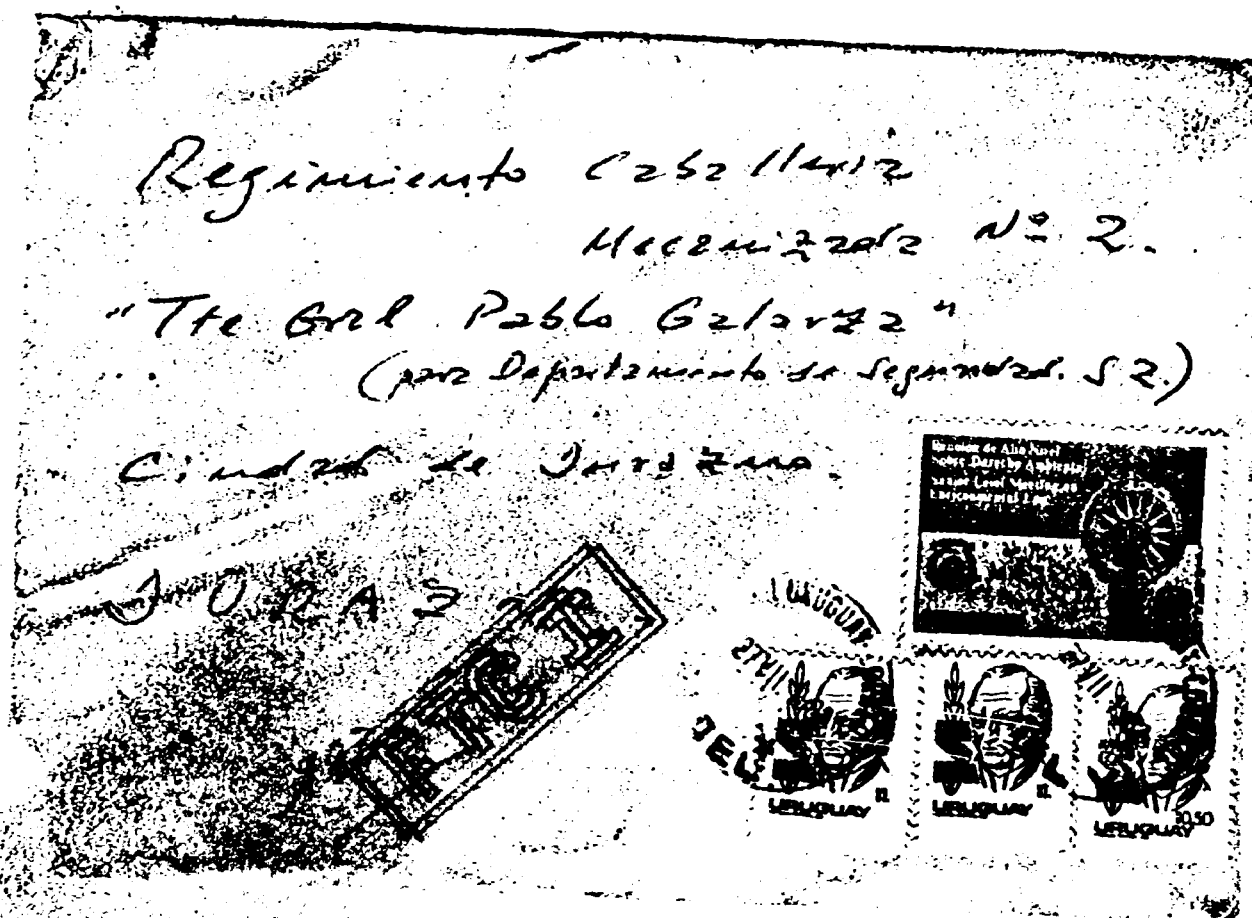 Regimiento Caballeria
Mecanizada Nº 2.
"Tte Gral Pablo Galarza"
(para Departamento de Seguridad. S 2.)
Ciudad de Durazno.
Reunion de Alto Nivel
Sobre Derecho Ambiental
Senior Level Meeting on
Environmental Law
URUGUAY
URUGUAY
URUGUAY
URUGUAY
10.50